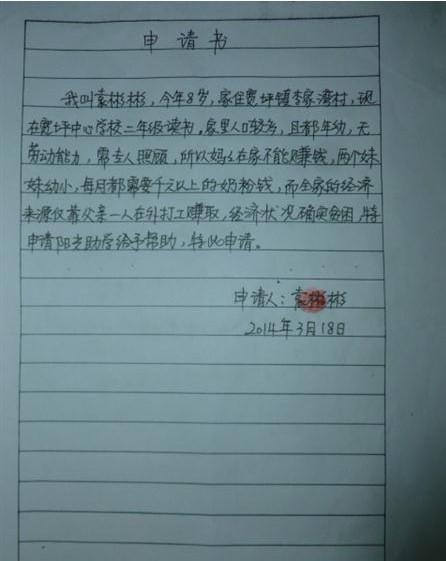 申请书
我叫袁彬彬，今年8岁，家住宽坪镇李家湾村，现
在宽坪中心学校二年级读书，家里人口较多，且都年幼，无
劳动能力，需专人照顾，所以妈妈在家不能赚钱，两个妹
妹幼小，每月都需要千元以上的奶粉钱，而全家的经济
来源仅靠父亲一人在外打工赚取，经济状况确实贫困，特
申请阳光助学给予帮助，特此申请。
申请人：袁彬彬
2014年3月18日